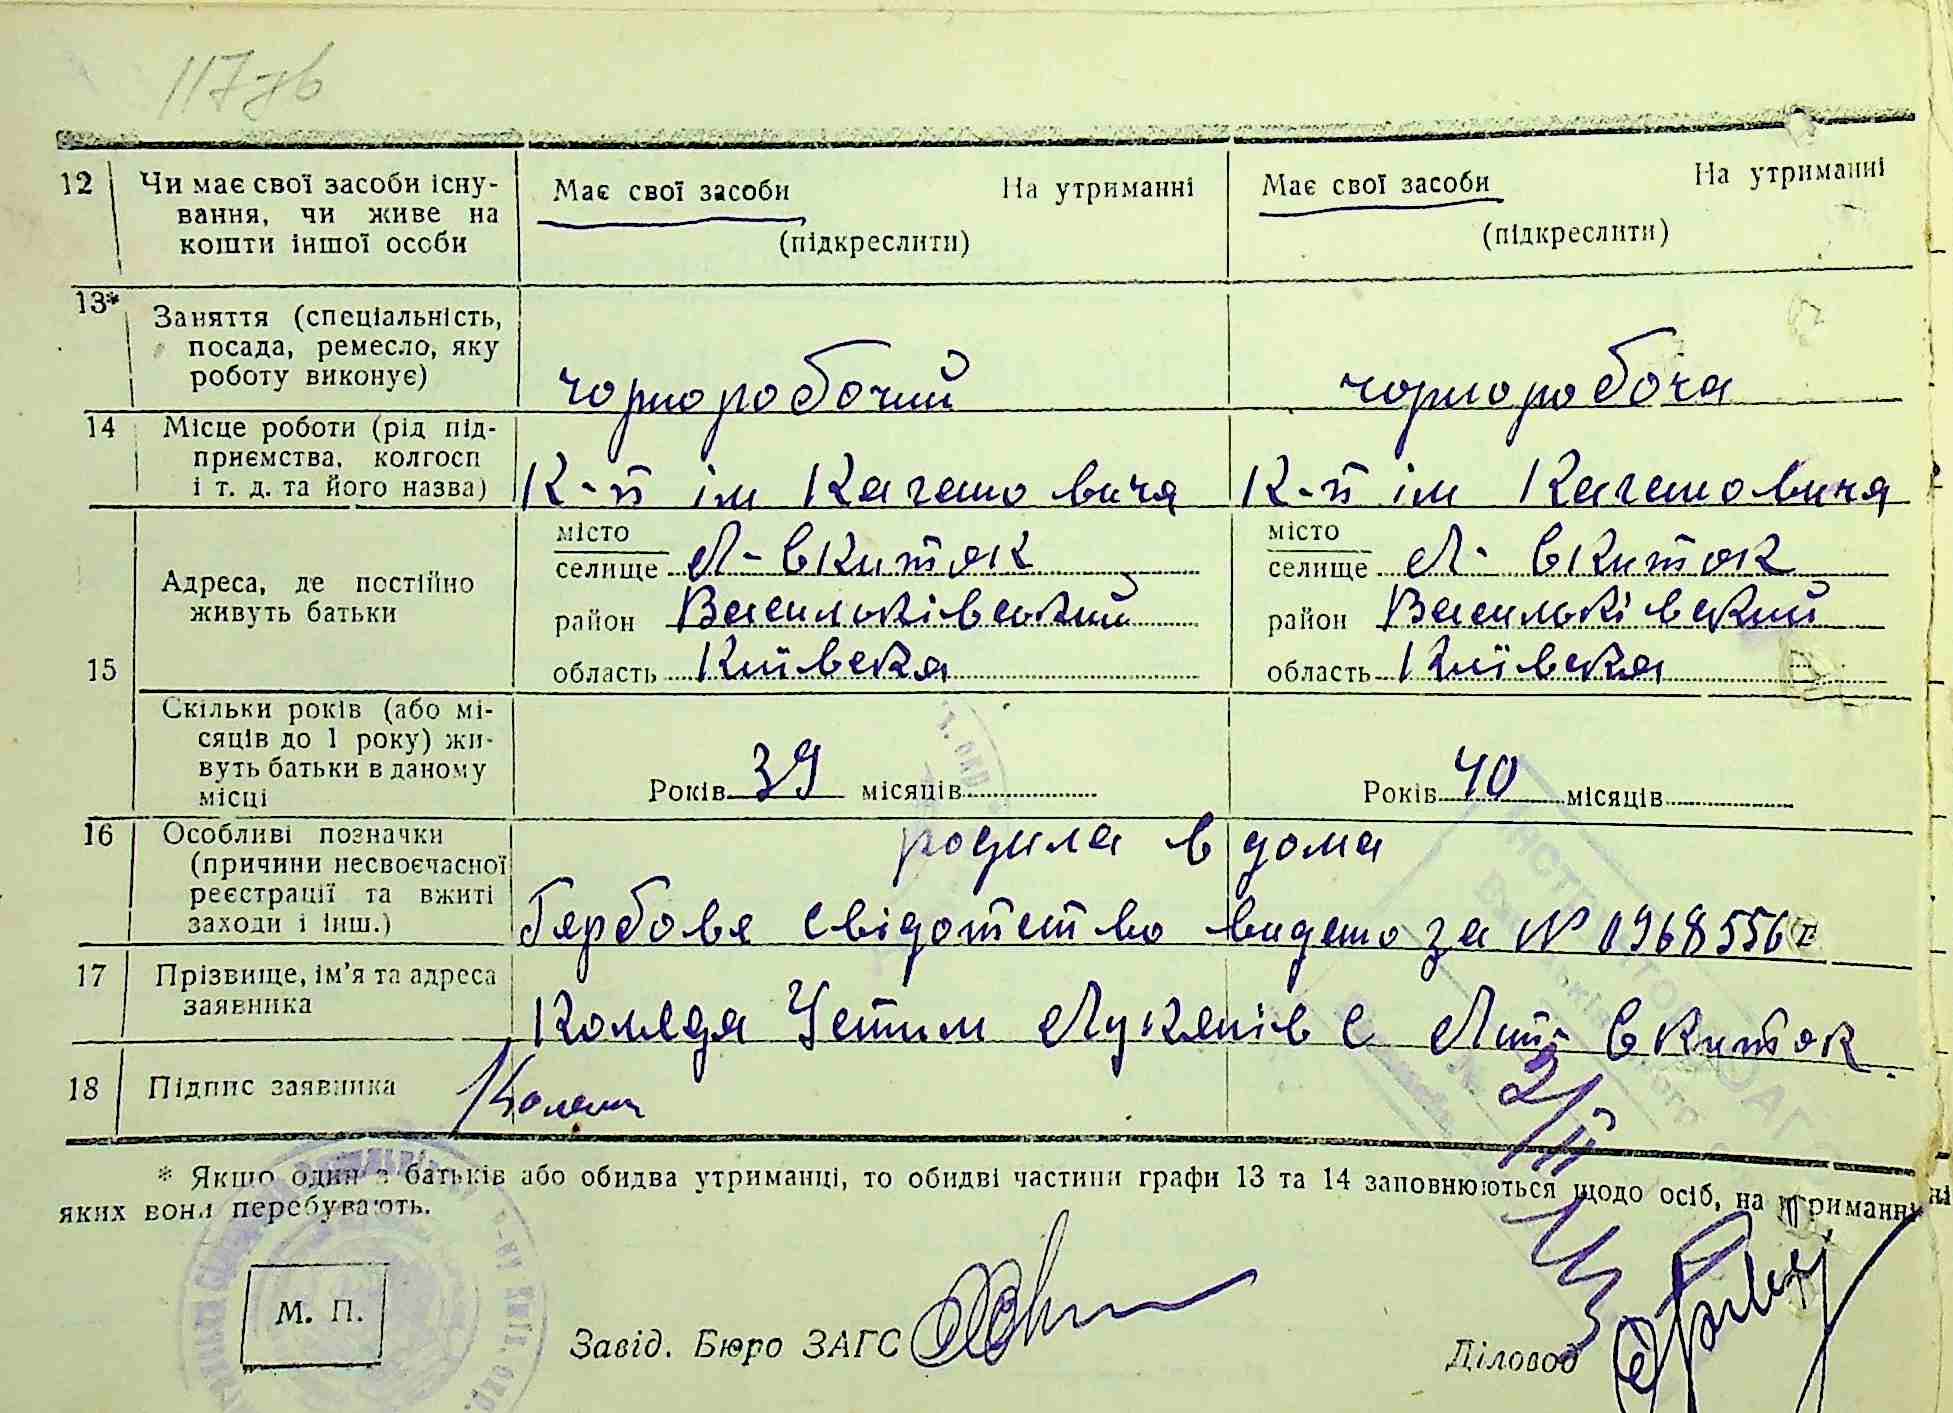 117 зв
12 Чи має свої засоби існу-
вання, чи живе на
кошти іншої особи
Має свої засоби На утриманні
(підкреслити)
Має свої засоби На утриманні
(підкреслити)
13* Заняття (спеціальність,
посада, ремесло, яку
роботу виконує)
чорноробочий
чорноробоча
14 Місце роботи (рід під-
приємства, колгосп
і т. д. та його назва)
К-п ім Кагановича
К-п ім Кагановича
15
Адреса, де постійно
живуть батьки
місто
селище Л-Вкиток
район Васильківський
область Київска
місто
селище Л-Вкиток
район Васильківский
область Київска
Скільки років (або мі-
сяців до 1 року) жи-
вуть батьки в даному
місці
Років 39 місяців
Років 40 місяців
16 Особливі позначки
(причини несвоєчасної
реєстрації та вжиті
заходи і інш.)
родила в дома
Гербове свідотство видано за №
17 Прізвище, ім'я та адреса
заявника
Коляда Устим с Лит Вкиток.
18 Підпис заявника
* Якщо один з батьків або обидва утриманці, то обидві частини графи 13 та 14 заповнюються щодо осіб, на утриманні
яких вони перебувають.
М. П.
Завід. Бюро ЗАГС
Діловод